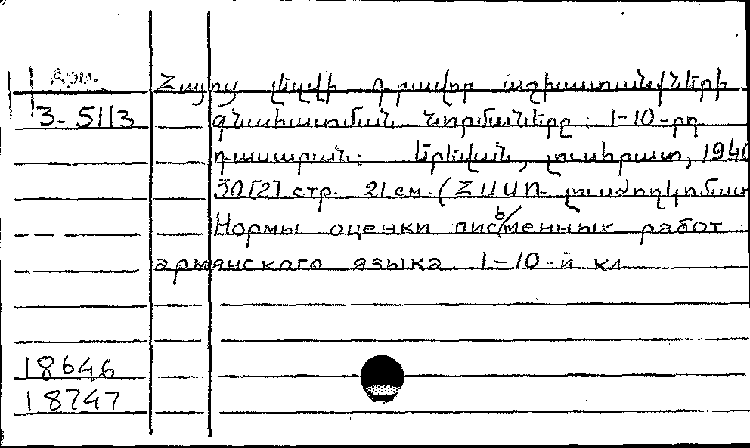 Арм.
Հայոց լեզվի գրավոր աշխատանքների
3-5113 գնահատման նորմաները: 1-10-րդ
դասարան: Երևան, լուսհրատ, 1940
30[2] стр. 21 см. (ՀՍՍՌ լուսժողկոմատ
Нормы оценки письменных работ
армянского языка 1-10-й кл
18646
18747